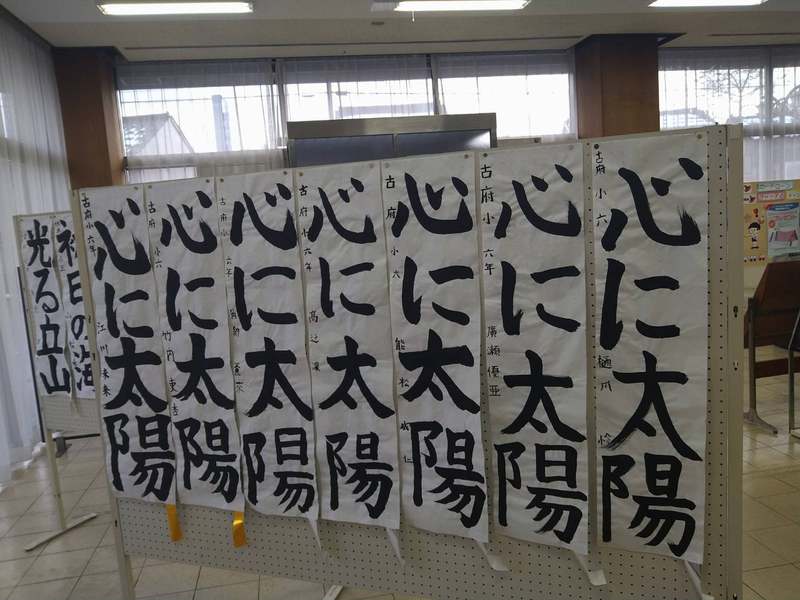 心に太陽
古府小六
心に太陽
古府小六年 廣瀬優亜
心に太陽
古府小六 能松
心に太陽
古府小六年 高辻
心に太陽
古府小六年
心に太陽
古府小六 竹内
心に太陽
古府小六年 江川未来
初日の海
光る立山